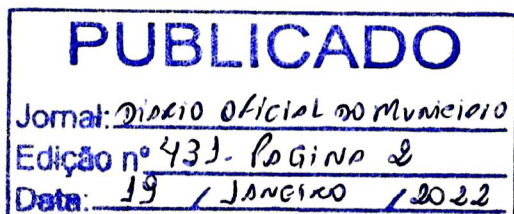 PUBLICADO
Jornal: DIÁRIO OFICIAL DO MUNICIPIO
Edição nº 431. PAGINA 2
Data: 19 / JANEIRO / 2022